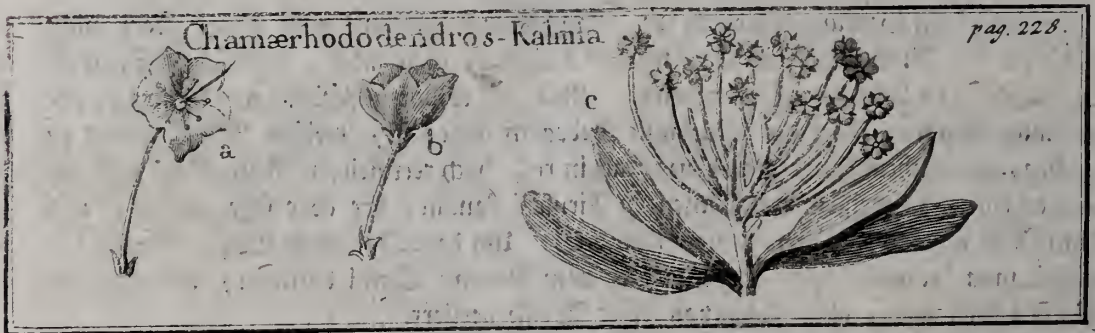 Chamærhododendros-Kalmia
pag. 228.
c
a
b